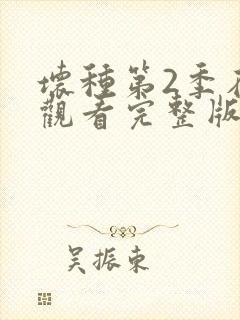 壞種第2季在
觀看完整版
吳振東